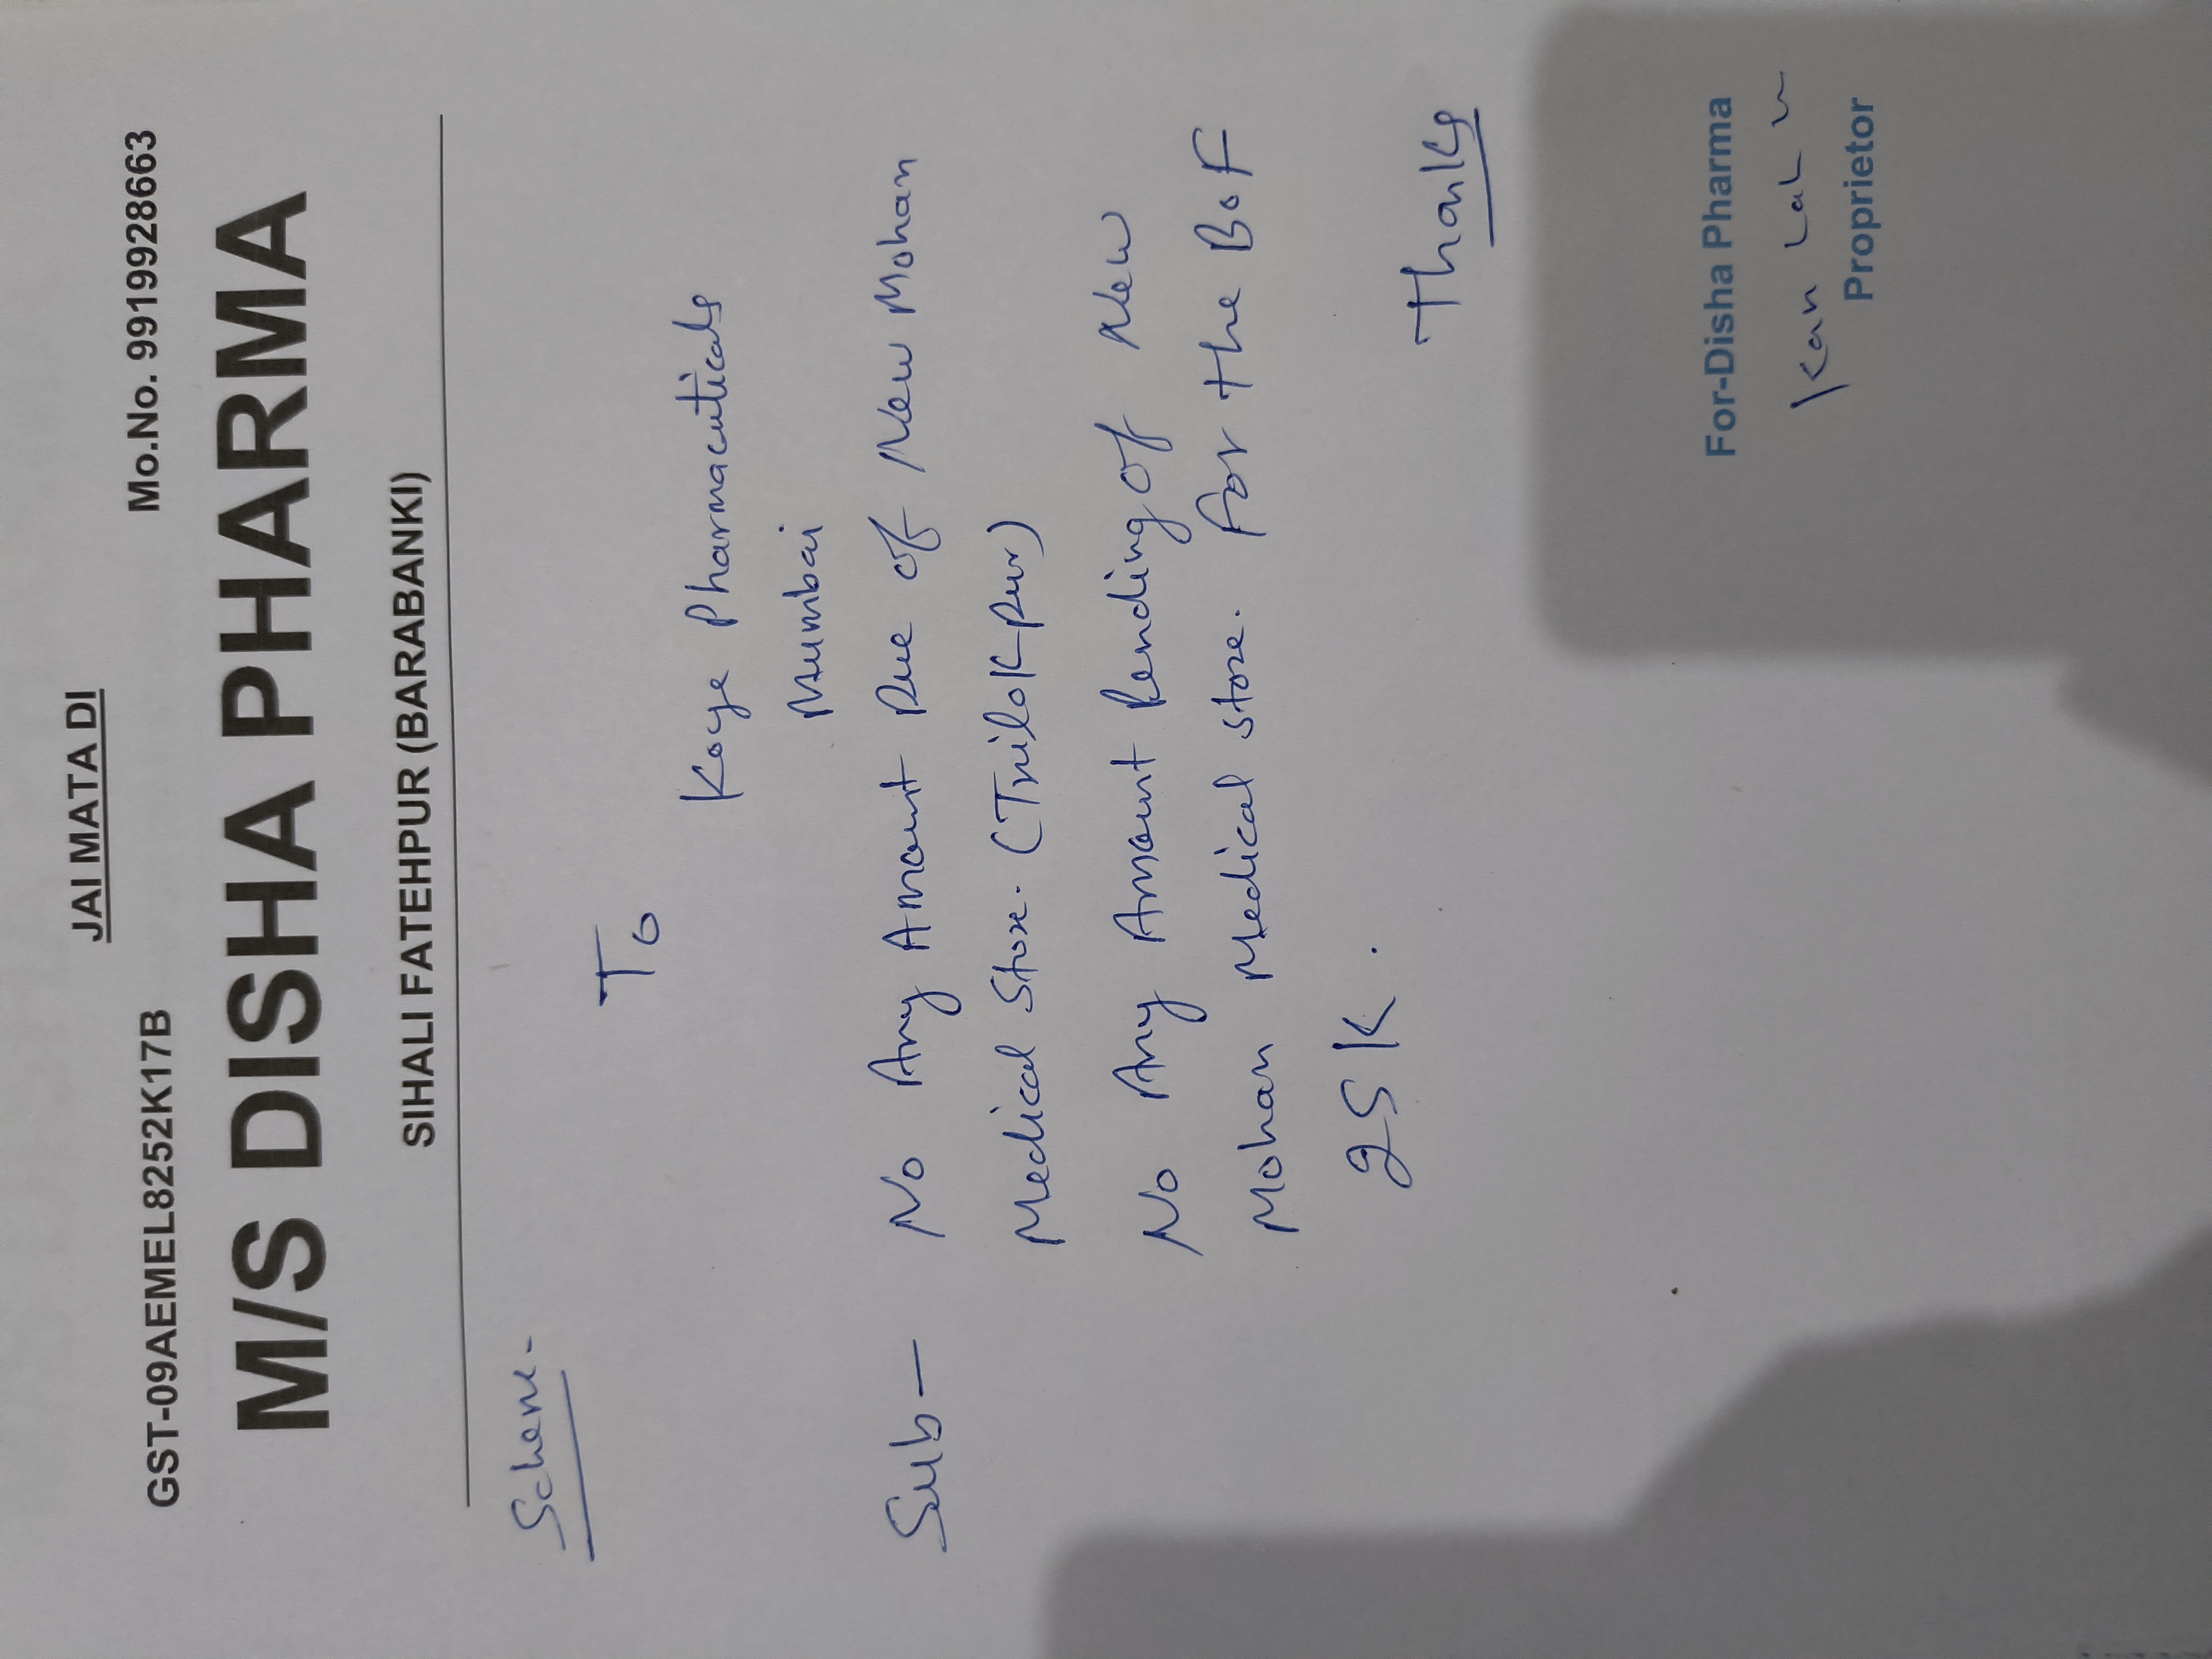 JAI MATA DI
GST-09AEMEL8252K17B Mo.No. 9919928663
M/S DISHA PHARMA
SIHALI FATEHPUR (BARABANKI)
Scheme-
To
Koye Pharmaceuticals
Mumbai
Sub- No Any Amount Due of New Mohan
Medical Store. (TrilokPur)
No Any Amount Pending of New
Mohan Medical Store. For the BoF
25K.
Thanks
For-Disha Pharma
Proprietor